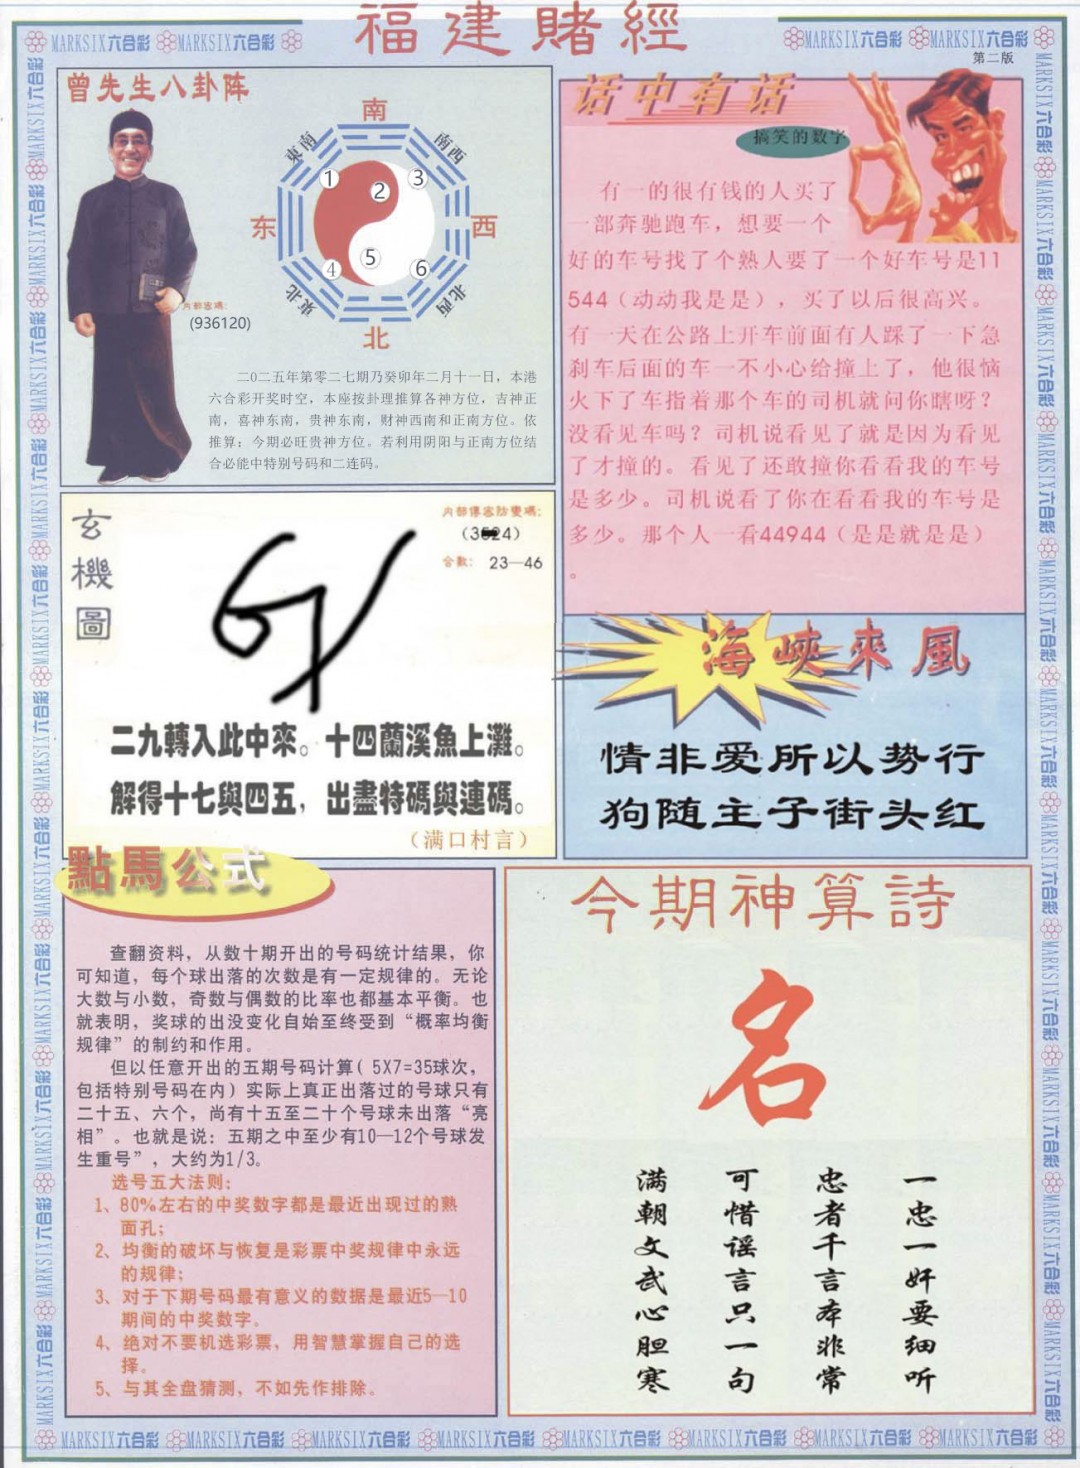 福建賭經
MARKSIX六合彩 MARKSIX六合彩
MARKSIX六合彩 MARKSIX六合彩
第二版
曾先生八卦阵
南
東南
南西
东
西
1
2
3
4
5
6
東北
北西
北
内部密碼:
(936120)
二〇二五年第零二七期乃癸卯年二月十一日，本港
六合彩开奖时空，本座按卦理推算各神方位，吉神正
南，喜神东南，贵神东南，财神西南和正南方位。依
推算：今期必旺贵神方位。若利用阴阳与正南方位结
合必能中特别号码和二连码。
话中有话
搞笑的数字
有一的很有钱的人买了
一部奔驰跑车，想要一个
好的车号找了个熟人要了一个好车号是11
544（动动我是是），买了以后很高兴。
有一天在公路上开车前面有人踩了一下急
刹车后面的车一不小心给撞上了，他很恼
火下了车指着那个车的司机就问你瞎呀？
没看见车吗？司机说看见了就是因为看见
了才撞的。看见了还敢撞你看看我的车号
是多少。司机说看了你在看看我的车号是
多少。那个人一看44944（是是就是是）
。
玄機圖
内部傳密防變碼:
24)
合數： 23—46
二九轉入此中來。十四蘭溪魚上灘。
解得十七與四五，出盡特碼與連碼。
（满口村言）
海峽來風
情非爱所以势行
狗随主子街头红
點馬公式
查翻资料，从数十期开出的号码统计结果，你
可知道，每个球出落的次数是有一定规律的。无论
大数与小数，奇数与偶数的比率也都基本平衡。也
就表明，奖球的出没变化自始至终受到“概率均衡
规律”的制约和作用。
但以任意开出的五期号码计算( 5X7=35球次，
包括特别号码在内）实际上真正出落过的号球只有
二十五、六个，尚有十五至二十个号球未出落“亮
相”。也就是说：五期之中至少有10—12个号球发
生重号”，大约为1/3。
选号五大法则：
1、80%左右的中奖数字都是最近出现过的熟
面孔；
2、均衡的破坏与恢复是彩票中奖规律中永远
的规律；
3、对于下期号码最有意义的数据是最近5—10
期间的中奖数字。
4、绝对不要机选彩票，用智慧掌握自己的选
择。
5、与其全盘猜测，不如先作排除。
今期神算詩
名
一忠一奸要细听
忠者千言本非常
可惜谣言只一句
满朝文武心胆寒
MARKSIX六合彩 MARKSIX六合彩 MARKSIX六合彩 MARKSIX六合彩 MARKSIX六合彩 MARKSIX六合彩 MARKSIX六合彩 MARKSIX六合彩